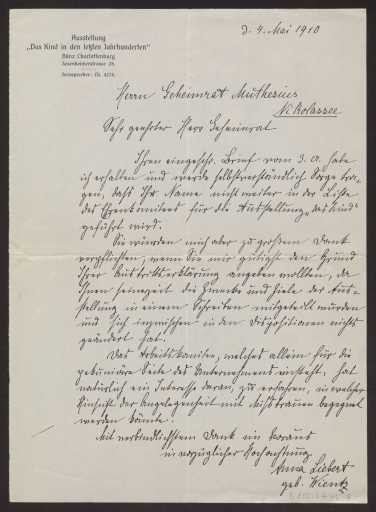 Ausstellung
„Das Kind in den letzten Jahrhunderten"
Büro: Charlottenburg
Fernsprecher: Ch.
d. 4. Mai 1910
Herrn Geheimrat Muthesius
Nikolassee
Sehr geehrter Herr Geheimrat
Ihren eingeschr. Brief vom 3. d. habe
ich erhalten und werde selbstverständlich Sorge tra-
gen, dass Ihr Name nicht weiter in der Liste
des Ehrenkomitees für die Ausstellung „das Kind"
geführt wird.
Sie würden mich aber zu großem Dank
verpflichten, wenn Sie mir gütigst den Grund
Ihrer Austrittserklärung angeben wollten, da
Ihnen seinerzeit die Zwecke und Ziele der Aus-
stellung in einem Schreiben mitgeteilt wurden
und sich inzwischen in den Dispositionen nichts
geändert hat.
Das Arbeitskomitee, welches allein für die
pekuniäre Seite des Unternehmens einsteht, hat
natürlich ein Interesse daran, zu erfahren, in welcher
Hinsicht der Angelegenheit mit Misstrauen begegnet
werden könnte.
Mit verbindlichstem Dank im voraus
in vorzüglicher Hochachtung
Anna Liebert
geb. Wientz